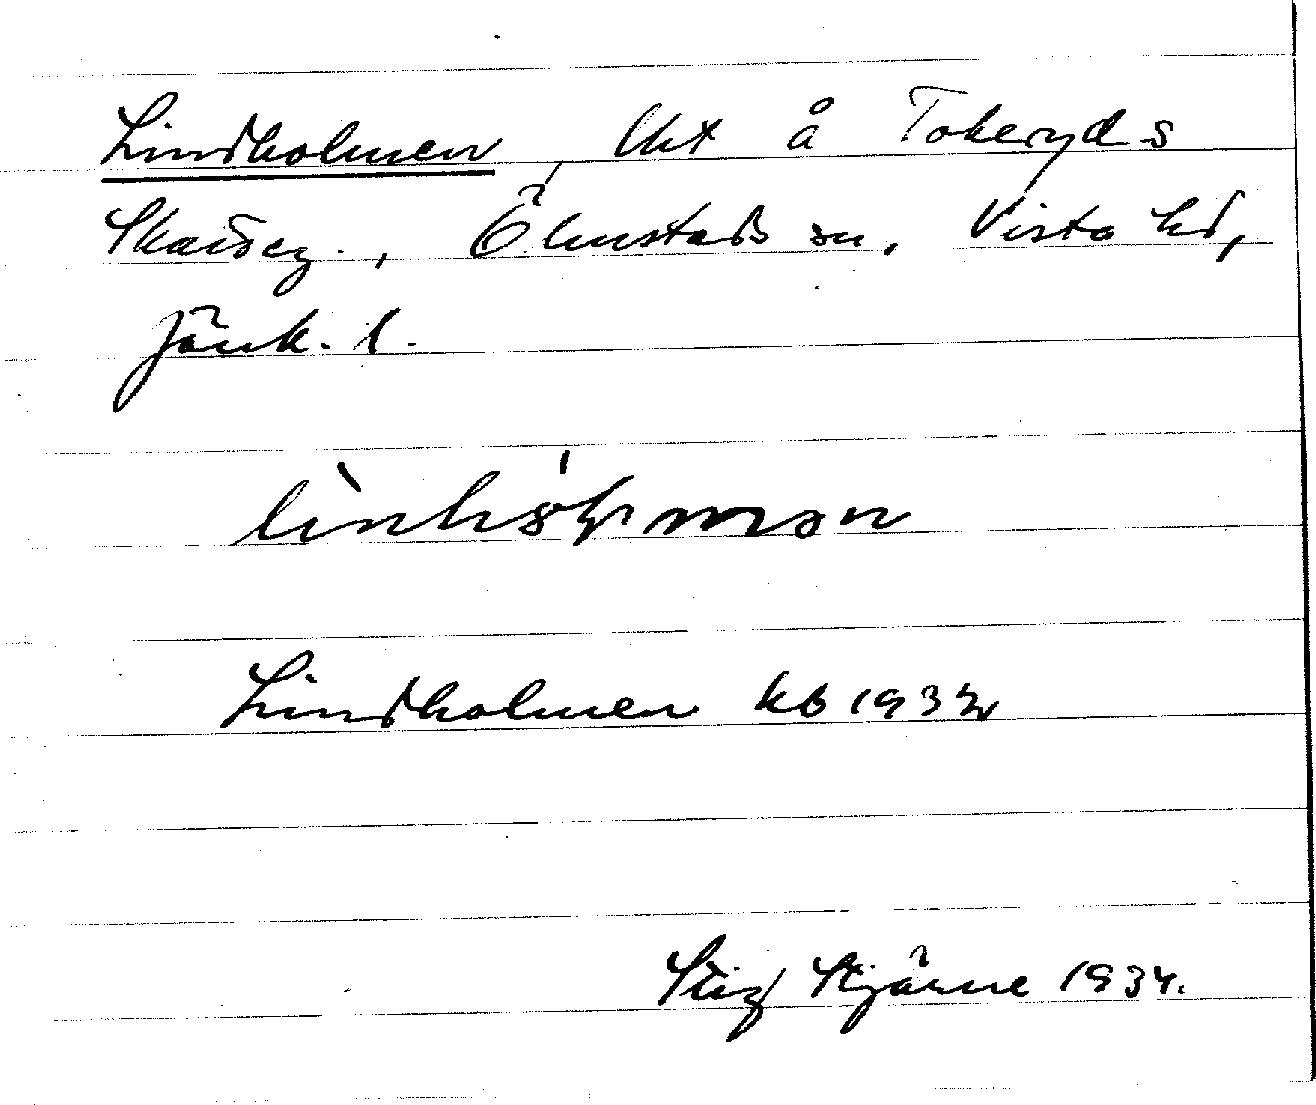 Lindholmen, Uht å Tokeryds
Skatteg., Ölmstads sn, Vista hd,
Jönk. l.
Lindholmen kb 1932
Stig Stjärne 1934.